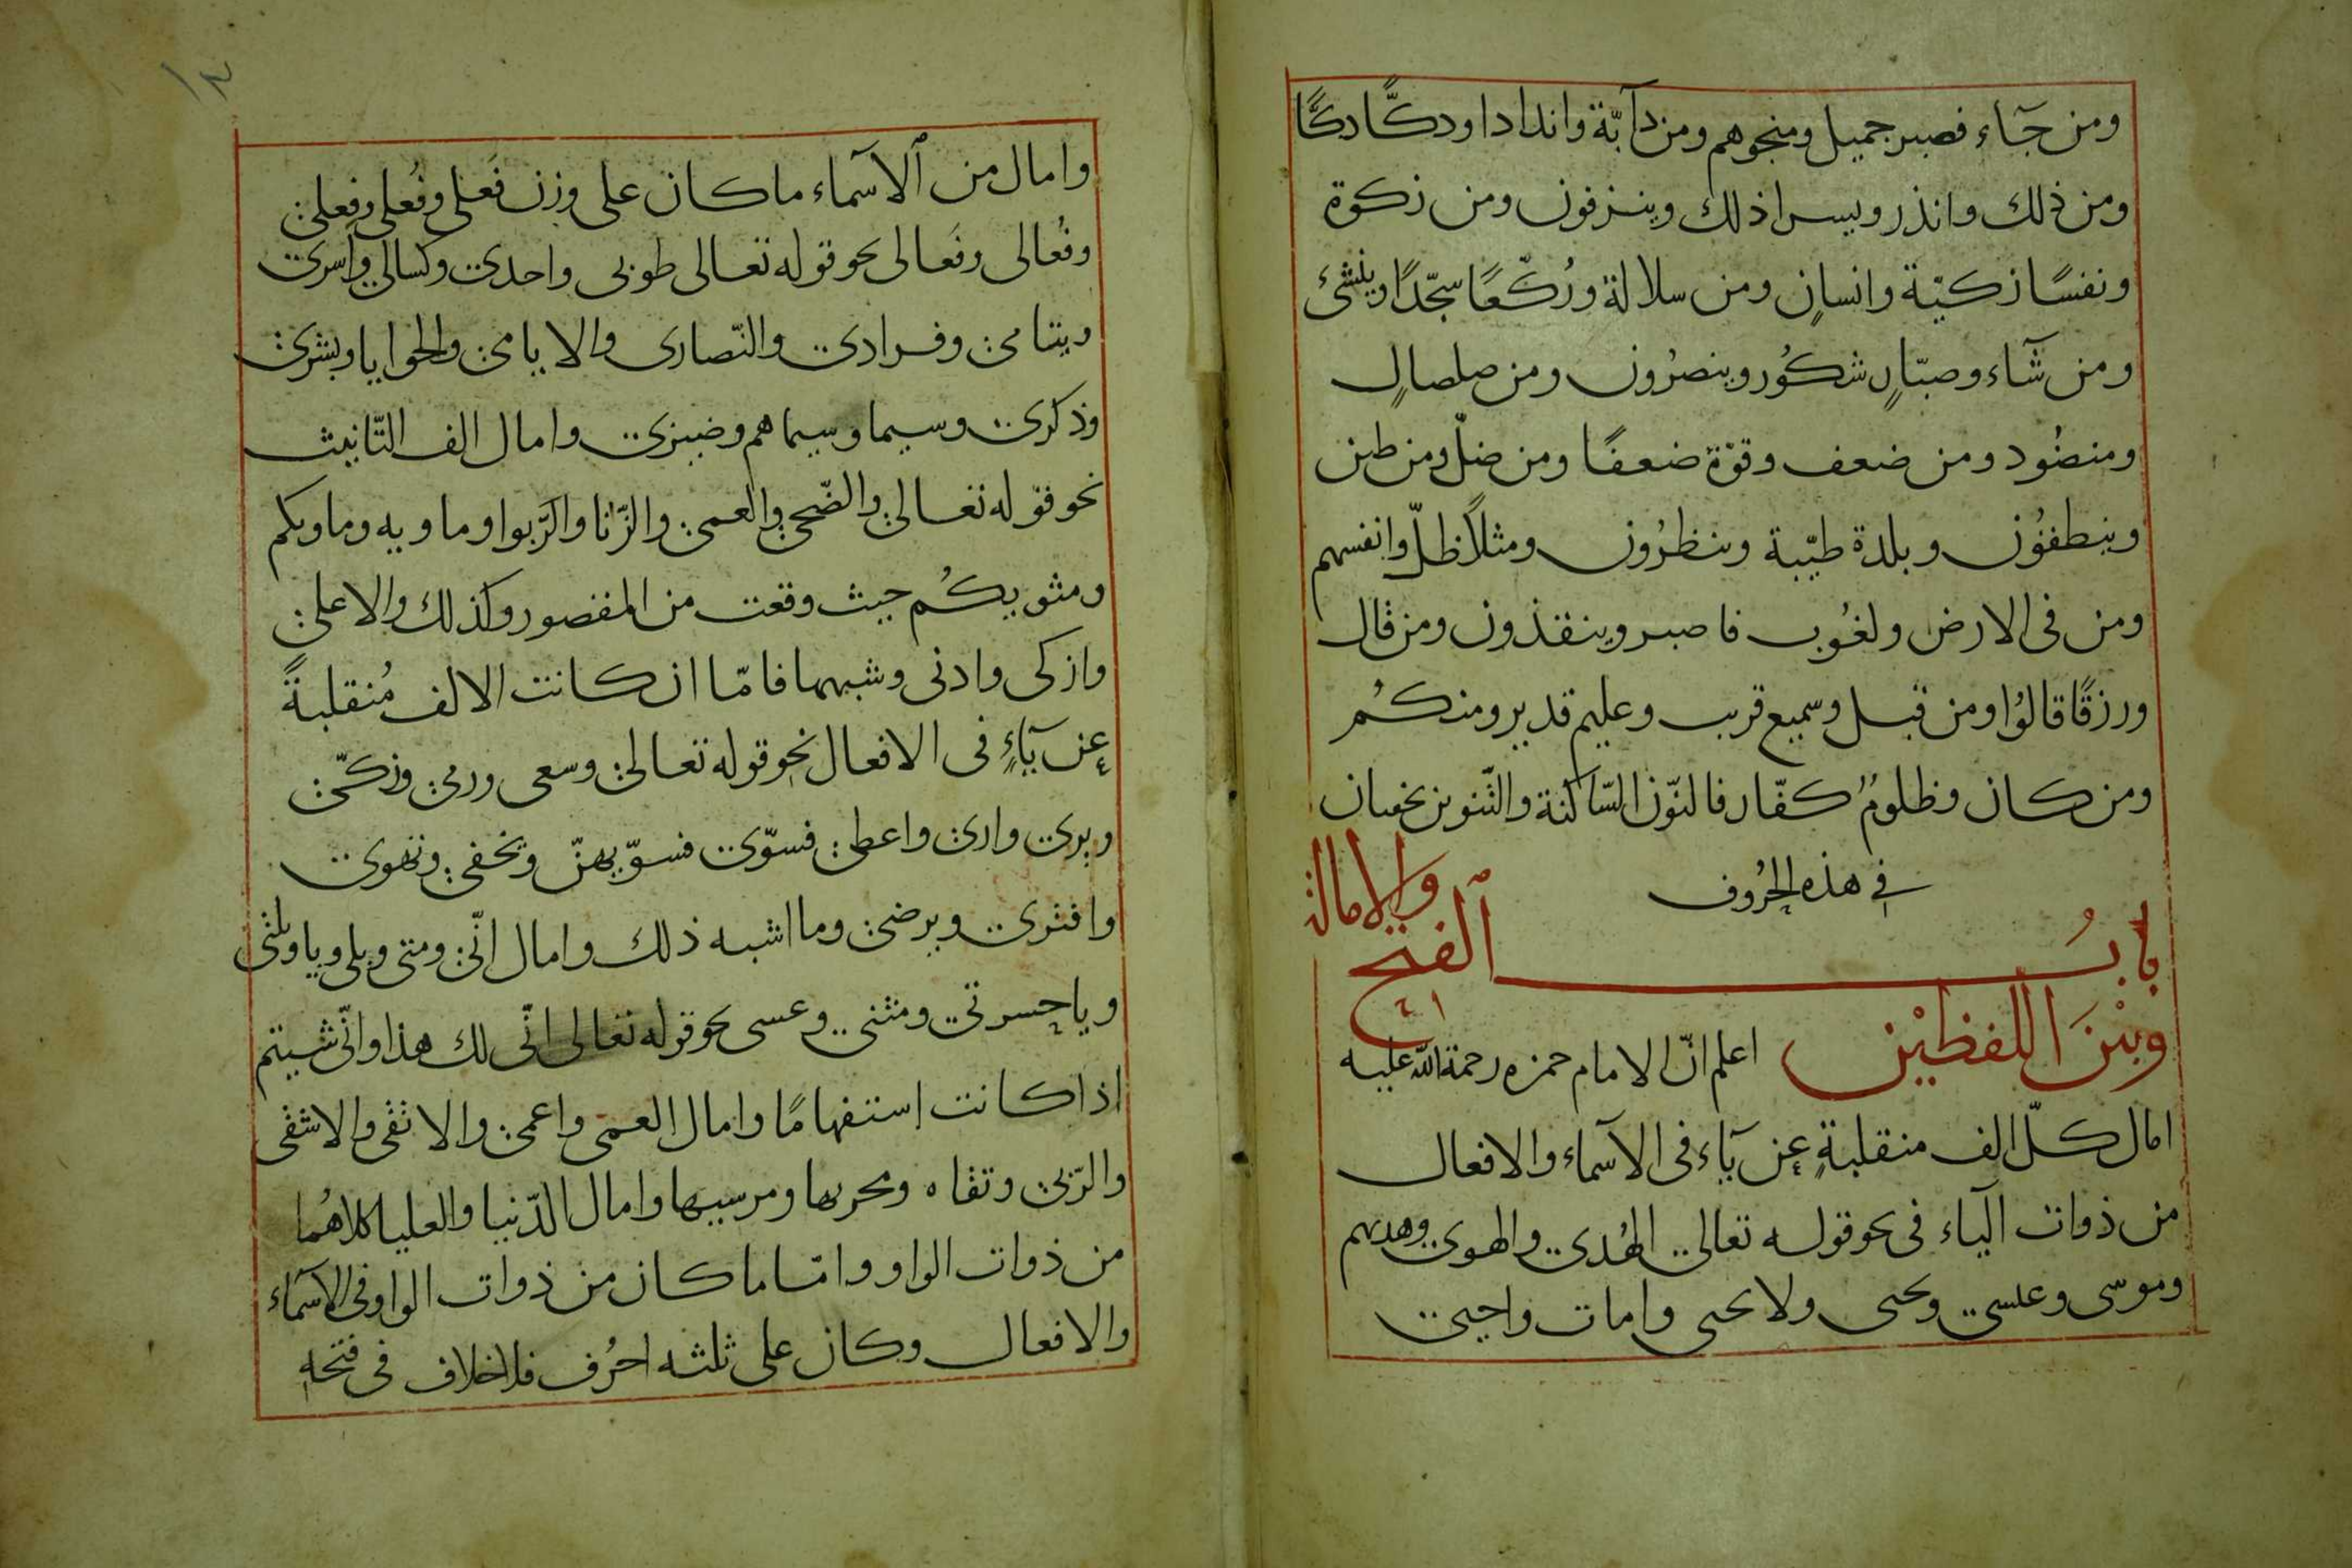 ومن جآء فصبر جميل ومنجوهم ومن دآبّة واندادا ودكًّا دكًّا
ومن ذلك وانذر ويسرا ذلك وينزفون ومن زكوة
ونفسًا زكيّة وانسانٍ ومن سلالة ورُكّعًا سجّدًا وينشئ
ومن شآء وصبّارٍ شكُور وينصرُون ومن صلصالٍ
ومنضُود ومن ضعف وقوّة ضعفًا ومن ضلّ ومن طين
وينطقُون وبلدة طيّبة وينظرُون ومثلاً ظلّ وانفسهم
ومن فى الارض ولغُوب فاصبر وينقذون ومن قال
ورزقًا قالوُا ومن قبل وسميع قريب وعليم قدير ومنكُم
ومن كان وظلومٌ كفّار فالنّون السّاكنة والتّنوين يخفيان
فى هذه الحرُوف
بابُ الفتح والامالة
وبيْنَ اللفظيْن اعلم انّ الامام حمزه رحمة الله عليه
امال كلّ الف منقلبةٍ عن يآء فى الاسمآء والافعال
من ذوات اليآء فى نحو قوله تعالى الهُدى والهوى وهديهم
وموسى وعيسى ويحيى ولا يحيى وامات واحيى
١٣
وامال من الاسمآء ما كان على وزن فَعلى وفُعلى وفعلى
وفُعالى وفَعالى نحو قوله تعالى طوبى واحدى وكسالى واسرى
ويتامى وفرادى والنّصارى والايامى والحوايا وبشرى
وذكرى وسيما وسيماهم وضيزى وامال الف التّانيث
نحو قوله تعالى والضّحى والعمى والزّنا والرّبوا وماويه وماويكم
ومثويكُم حيث وقعت من المقصور وكذلك والاعلى
وازكى وادنى وشبهها فامّا ان كانت الالف مُنقلبةً
عن يآءٍ فى الافعال نحو قوله تعالى وسعى ورمى وزكّى
ويرى وارى واعطى فسوّى فسوّيهنّ ويخفى وتهوى
وافترى ويرضى وما اشبه ذلك وامال انّى ومتى وبلى ويا ويلتى
ويا حسرتى ومثنى وعسى نحو قوله تعالى انّى لك هذا وانّى شيتم
اذا كانت استفهامًا وامال العمى واعمى والاتقى والاشقى
والرّبى وتقاه ومجريها ومرسيها وامال الدّنيا والعليا كلاهُما
من ذوات الواو وامّا ما كان من ذوات الواو فى الاسمآء
والافعال وكان على ثلثه احرُف فلا خلاف فى فتحه